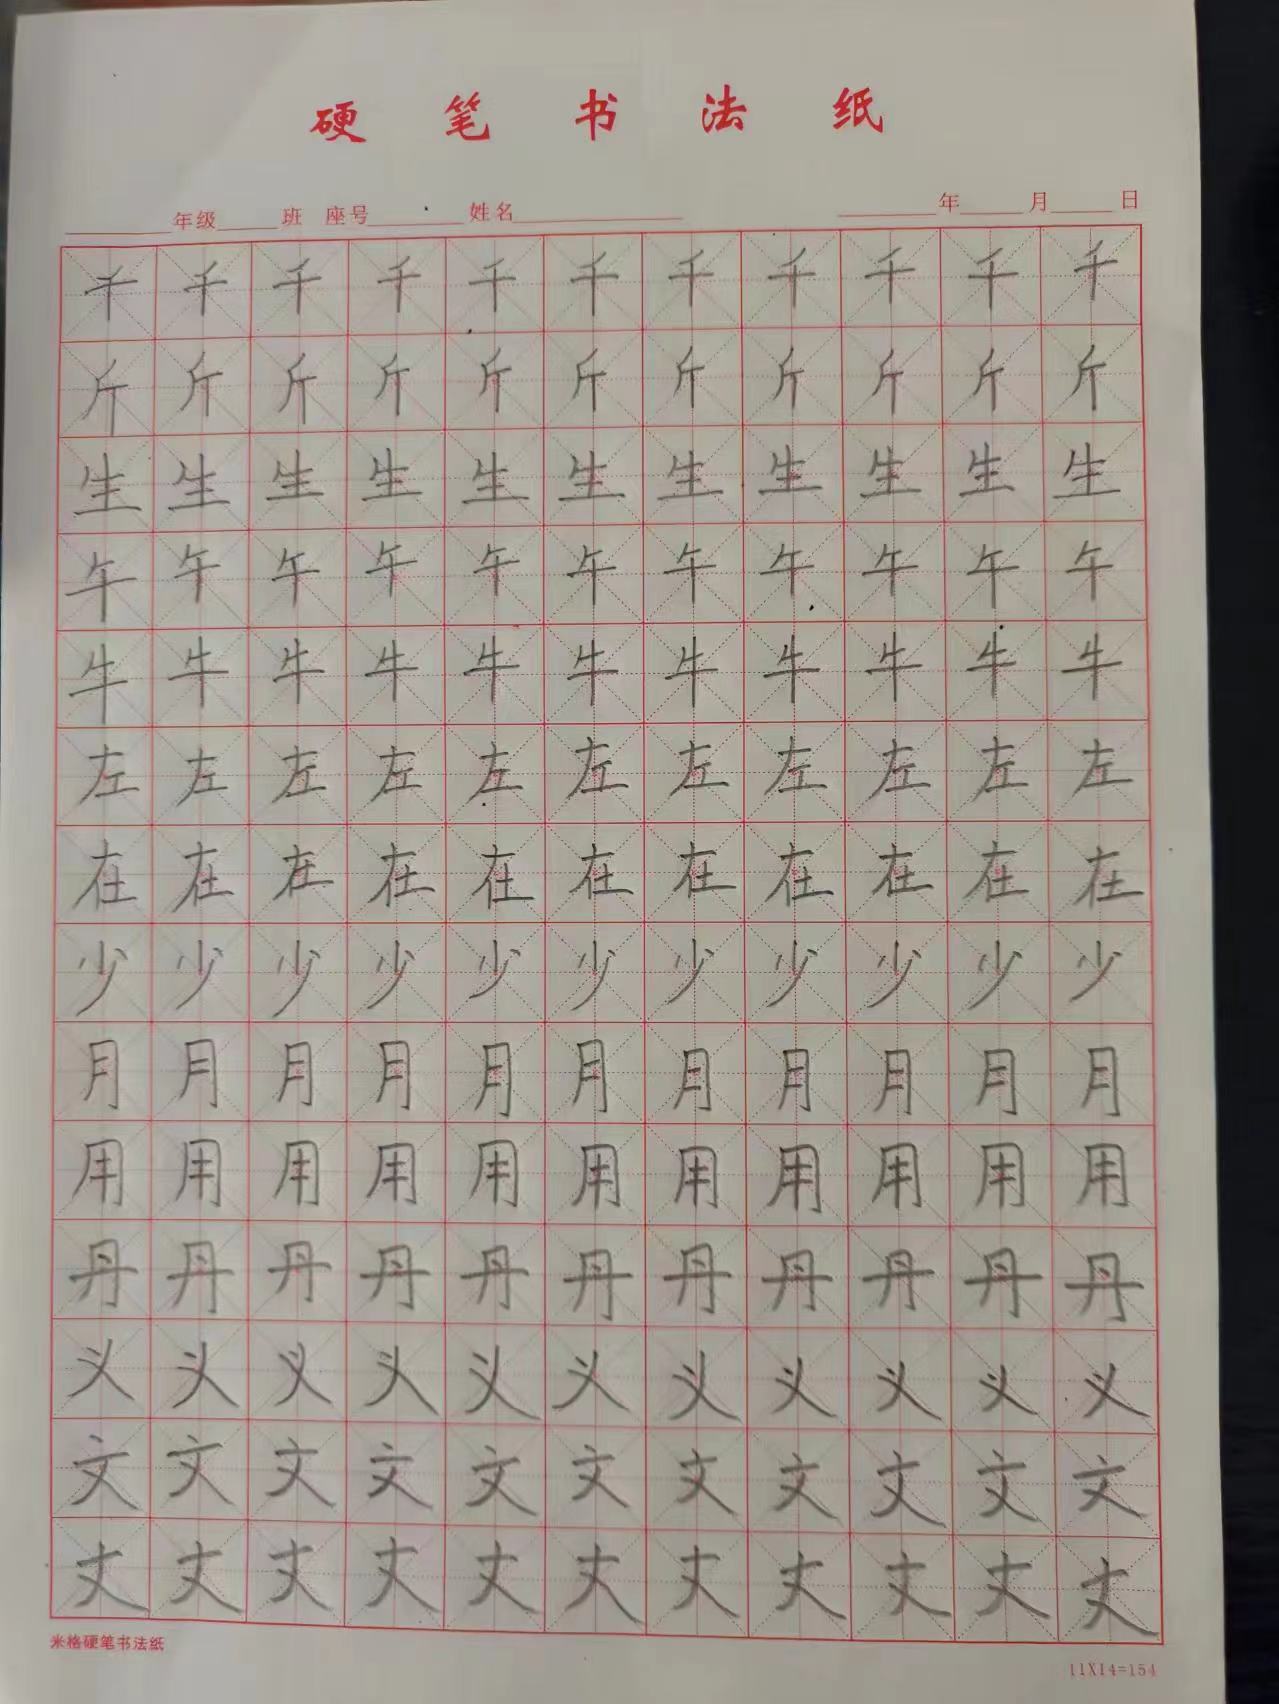 硬笔书法纸
年级 班 座号 姓名 年 月 日
千千千千千千千千千千千
斤斤斤斤斤斤斤斤斤斤斤
生生生生生生生生生生生
午午午午午午午午午午午
牛牛牛牛牛牛牛牛牛牛牛
左左左左左左左左左左左
在在在在在在在在在在在
少少少少少少少少少少少
月月月月月月月月月月月
用用用用用用用用用用用
丹丹丹丹丹丹丹丹丹丹丹
义义义义义义义义义义义
文文文文文文文文文文文
丈丈丈丈丈丈丈丈丈丈丈
米格硬笔书法纸
11X14=154